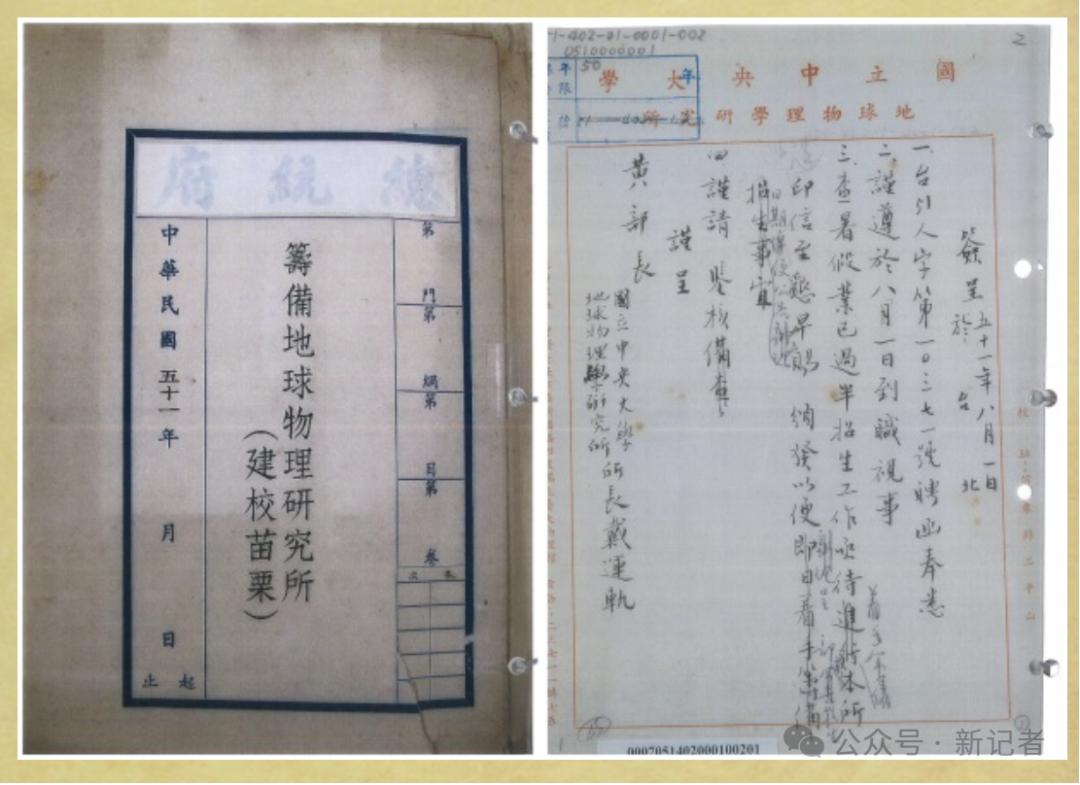 總統府
中華民國五十一年 月 日
起止
籌備地球物理研究所
(建校苗栗)
第 門
第 綱
第 目
第 卷
本 次
1-402-01-0001-002
0510000001
2
年 50
國立中央大學
地球物理學研究所
簽呈 五十一年八月一日
於台北
一、台引人字第一〇三七一號聘函奉悉
二、謹遵於八月一日到職視事
三、查暑假業已過半招生工作亟待進行本所
印信至懇早賜 頒發以便即日着手籌備
招生事宜
四、謹請 鑒核備查
謹呈
黃部長
國立中央大學
地球物理學研究所所長戴運軌
0007051402000100201
公众号·新记者